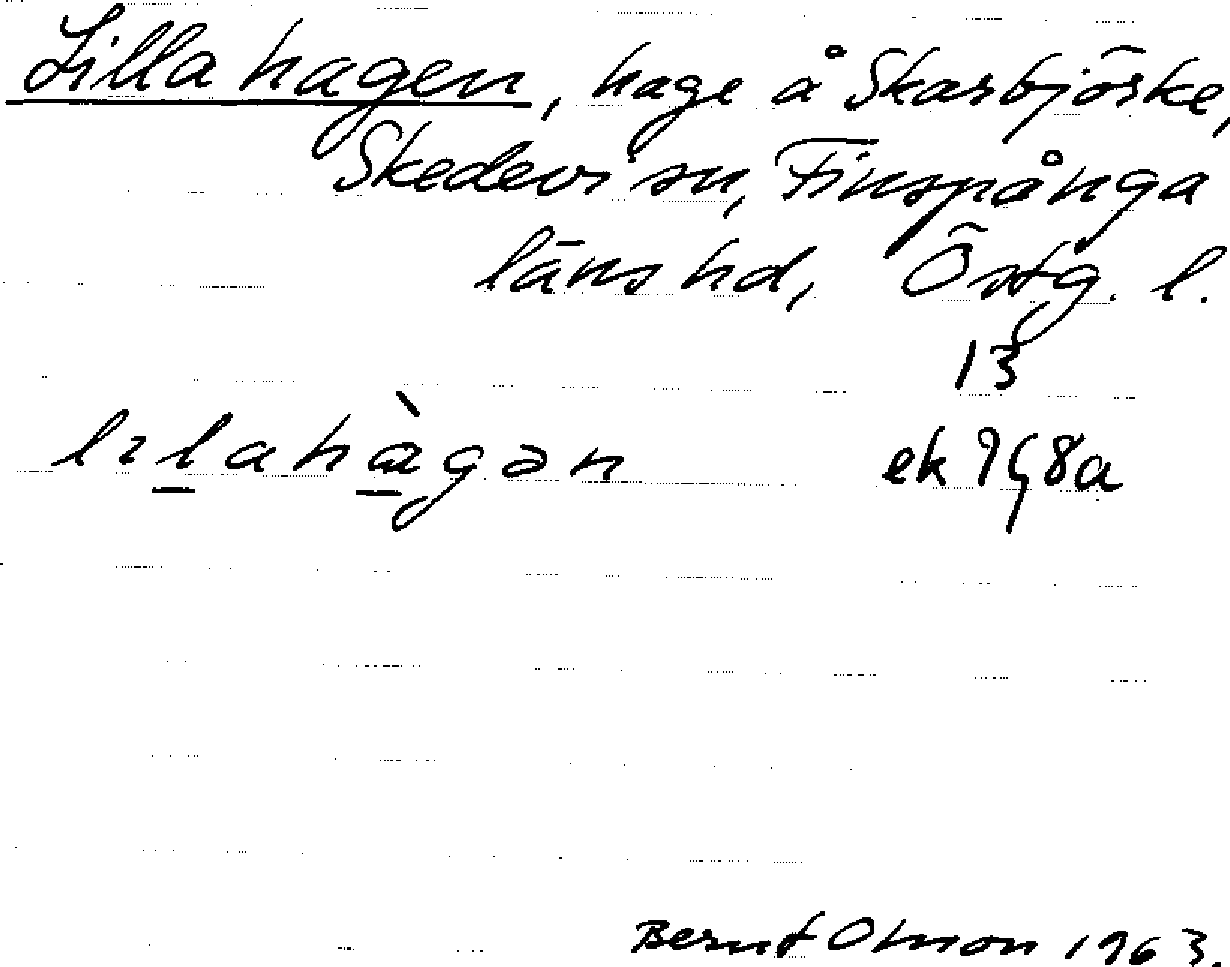 Lilla hagen, hage å Skarbjörke,
Skedevi sn, Finspånga
läns hd, Östg. l.
13
lılahàgən ek 9G8a
Bernt Olsson 1963.